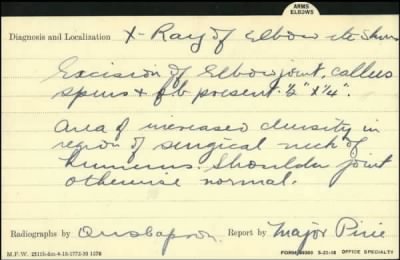 ARMS
ELBOWS
Diagnosis and Localization X-Ray of Elbow
Excision of Elbow joint. callus
spurs + f b present ½" x ¼".
Area of increased density in
region of surgical neck of
humerus. Shoulder joint
otherwise normal.
Radiographs by Report by Major Pirie
M. F. W. 2511b-dm-4-18-1772-39 1576 FORM 5-21-18 OFFICE SPECIALTY